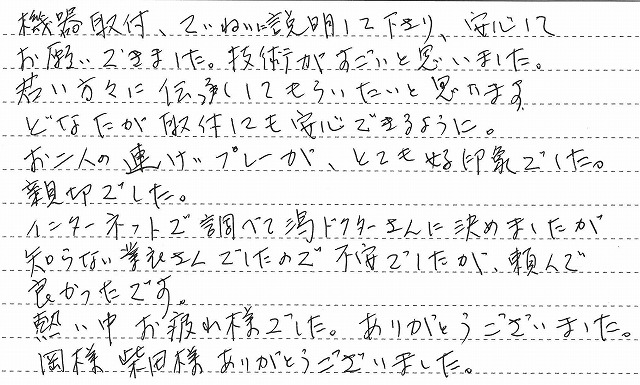 機器取付、ていねいに説明して下さり、安心して
お願いできました。技術がすごいと思いました。
若い方々に伝承してもらいたいと思います
どなたが取付しても安心できるように。
お二人の連けいプレーが、とても好印象でした。
親切でした。
インターネットで調べて潟ドクターさんに決めましたが
知らない業者さんでしたので不安でしたが、頼んで
良かったです。
熱い中お疲れ様でした。ありがとうございました。
岡様 柴田様 ありがとうございました。